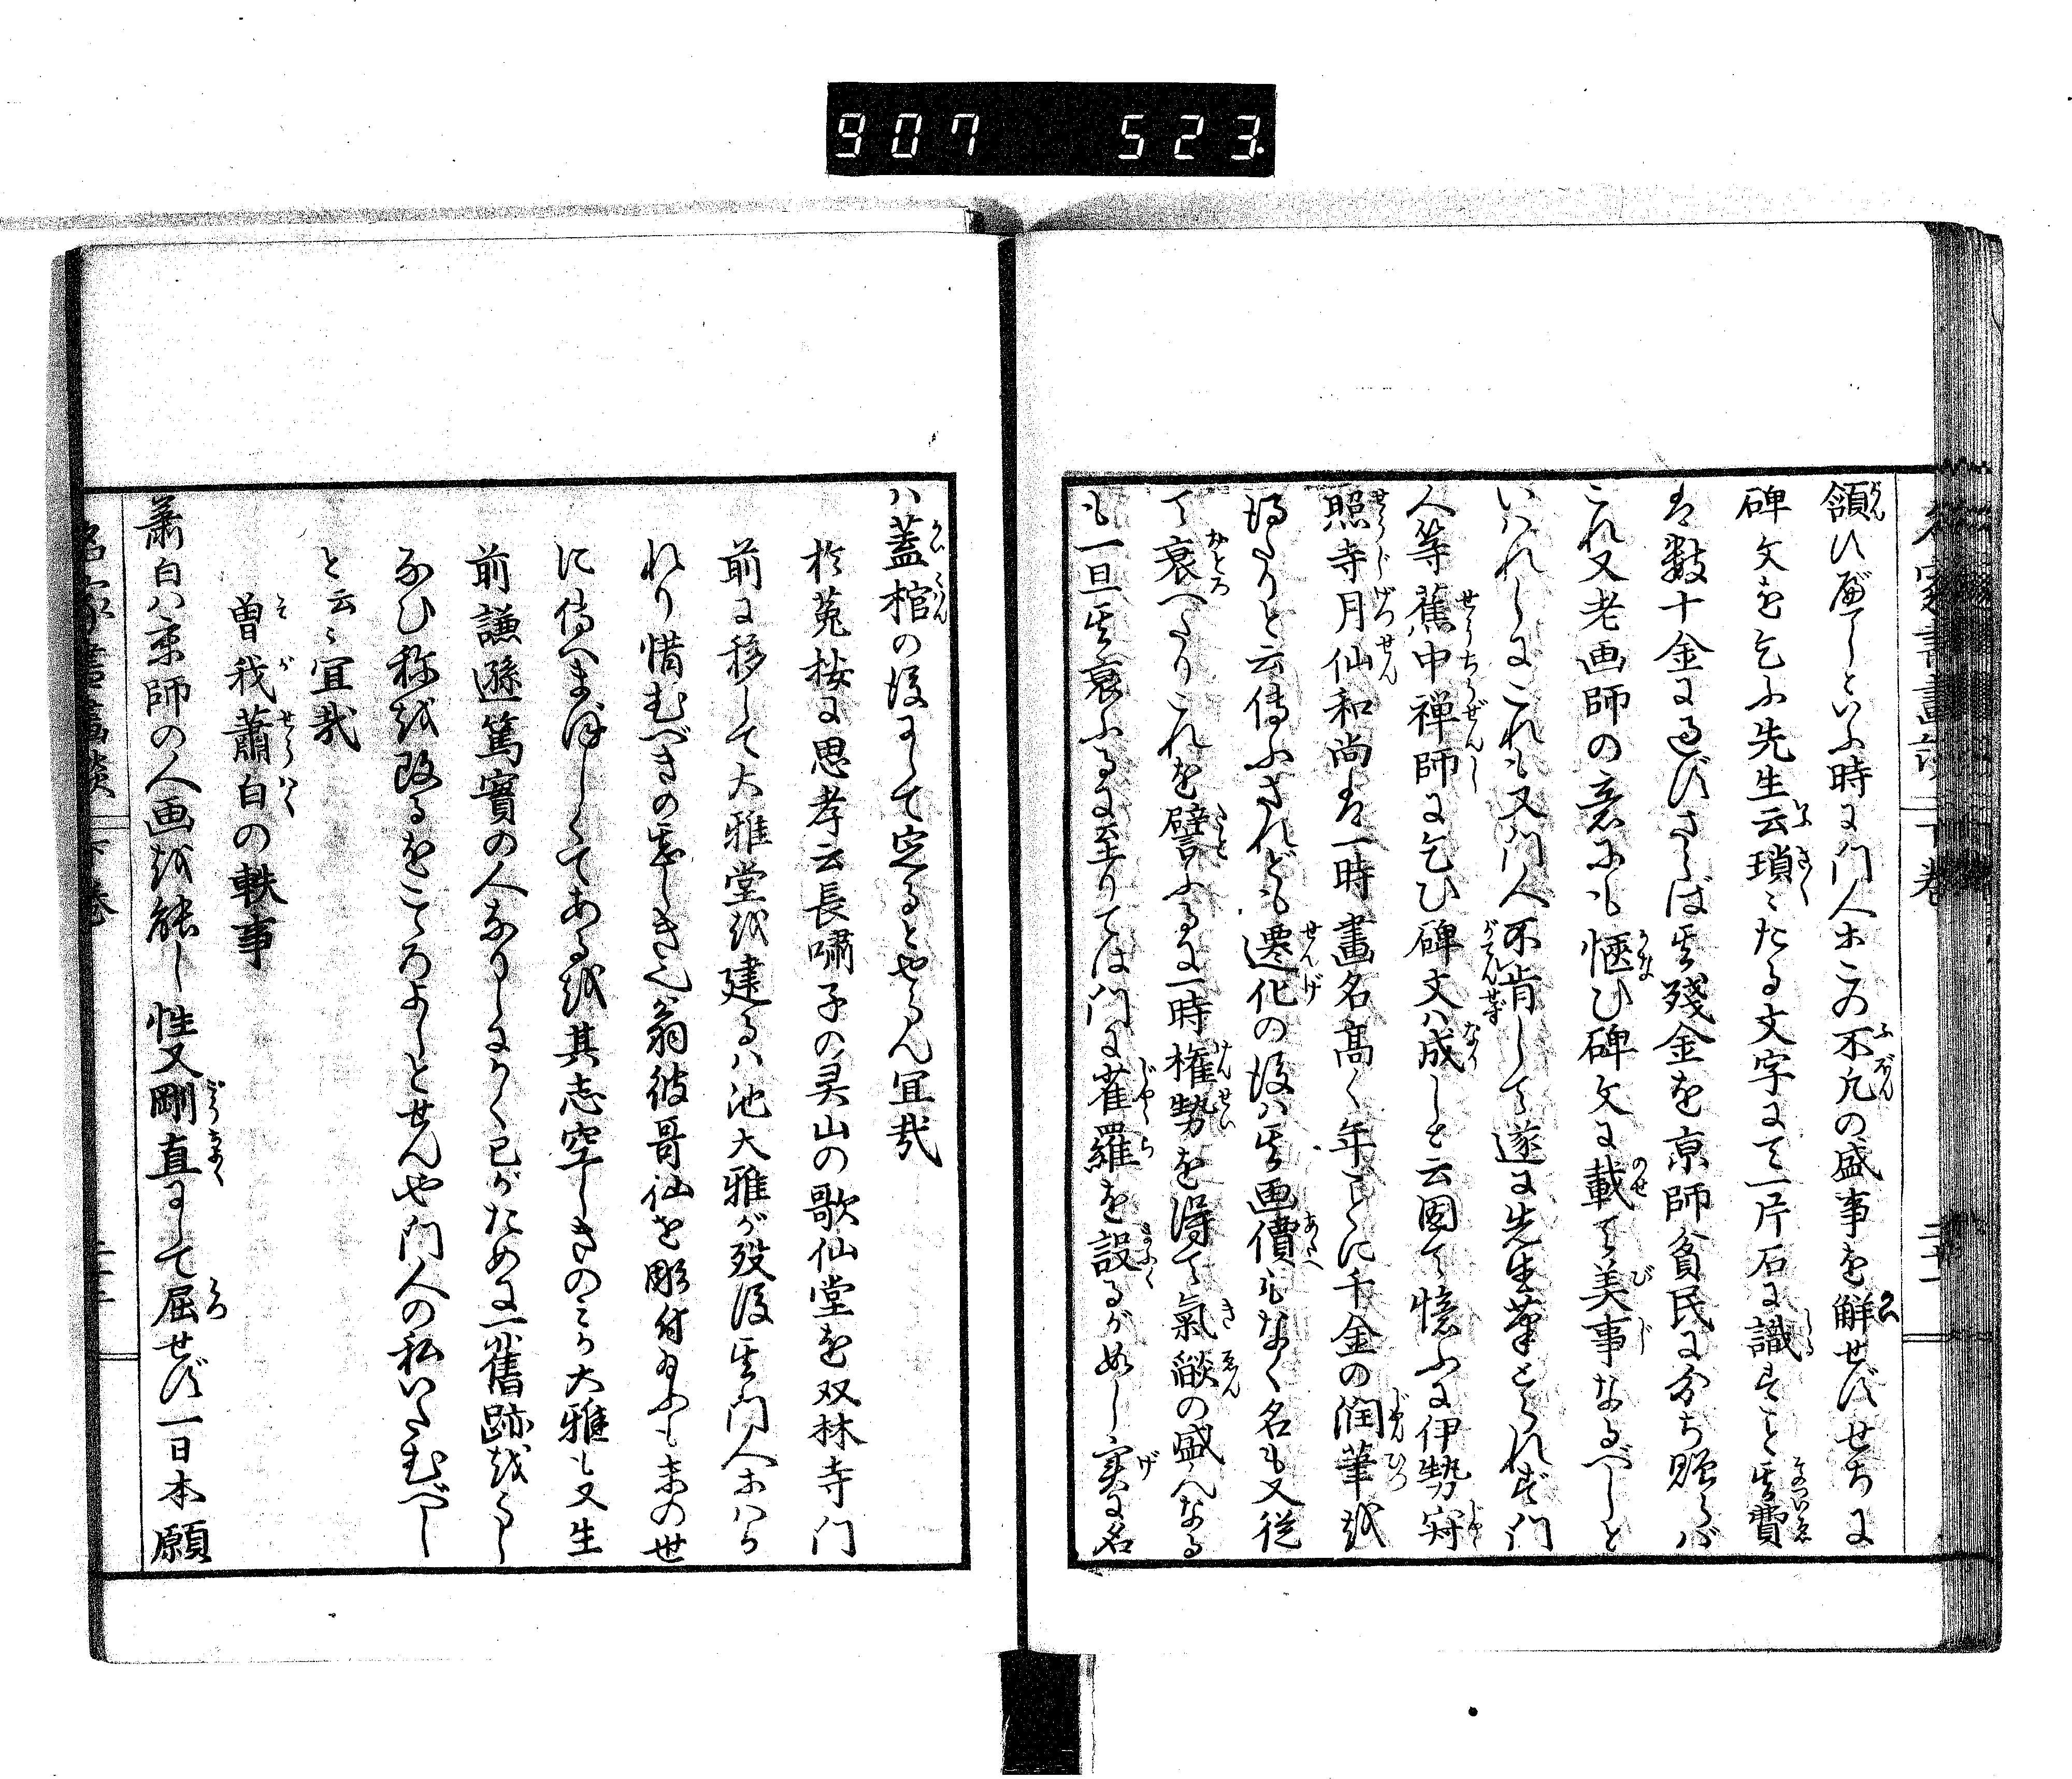 907 523
名家書畫談 下巻
頷ひ給へといふ時に門人等この不凡の盛事を解せずせちに
碑文を乞ふ先生云瑣〻たる文字にて一片石に識すこと其費
は数十金に過びさらば其残金を京師貧民に分ち賜らば
これ又老画師の意にも愜ひ碑文に載て美事なるべしと
いはれしにこれも又門人不肯して遂に先生筆とられず門
人等蕉中禅師に乞ひ碑文ハ成しと云因て憶ふに伊勢
照寺月仙和尚は一時畫名高く年ごとに千金の潤筆越
得たりと云傳ふされども遷化の後ハ其画價もなく名も又従
て衰へたりこれを譬ふるに一時権勢を得て氣燄の盛へなる
も一旦其衰ふるに至りては門に雀羅を設るが如し実に名
ハ蓋棺の後にして定るとやらん宜哉
於菟按に思孝云長嘯子の灵山の歌仙堂を双林寺門
前に移して大雅堂越建るハ池大雅が歿後其門人等ハか
れり惜むべきの甚しき也翁彼哥仙を彫付るふも末の世
に傳へまほしくてある越其志空しきのミか大雅も又生
前謙遜篤實の人なりしにかく己がために舊跡越
なひ称越改るをこころよしとせんや門人の私いたむべし
と云〻宜哉
曽我蕭白の軼事
蕭白ハ京師の人画越能し性又剛直にして屈せず一日本願
名家書畫談 下巻